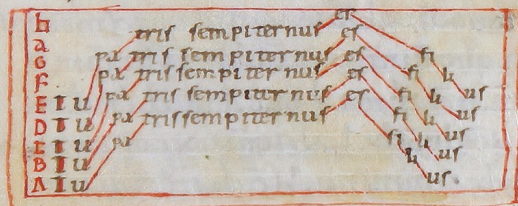 h es
tris sem pi ter nus es
a pa tris sem pi ter nus es fi
G pa tris sem pi ter nus es li
F pa tris sem pi ter nus es fi li us
E Tu pa tris sem pi ter nus es fi li us
D Tu pa fi li us
C Tu li us
B Tu
A Tu us